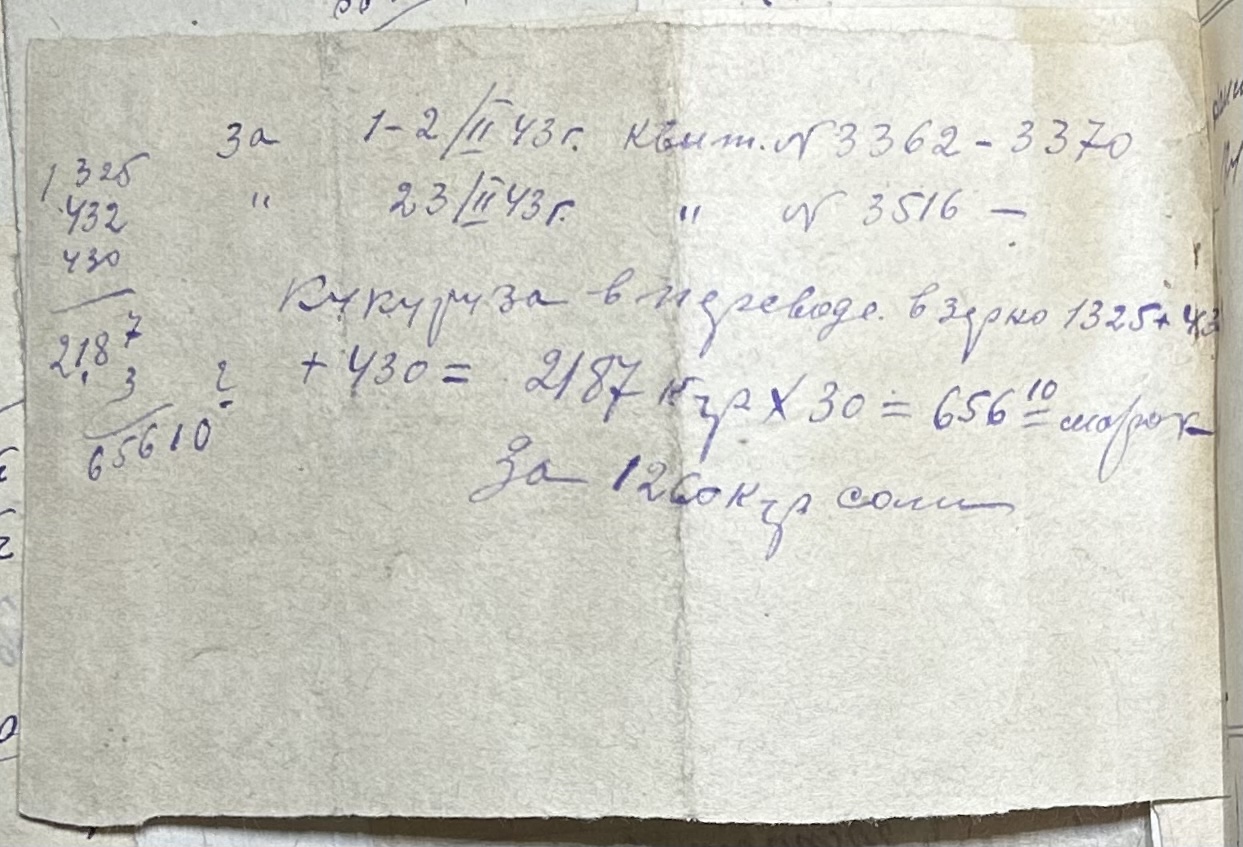 за 1-2/II 43 г. квит. N 3362 - 3370
" 23/II 43 г. " N 3516 —
Кукуруза в переводе в зерно 1325 + 43
+ 430 = 2187 кгр X 30 = 656 10 марок
За 1260 кгр соли
1325
432
430
2187
3
65610